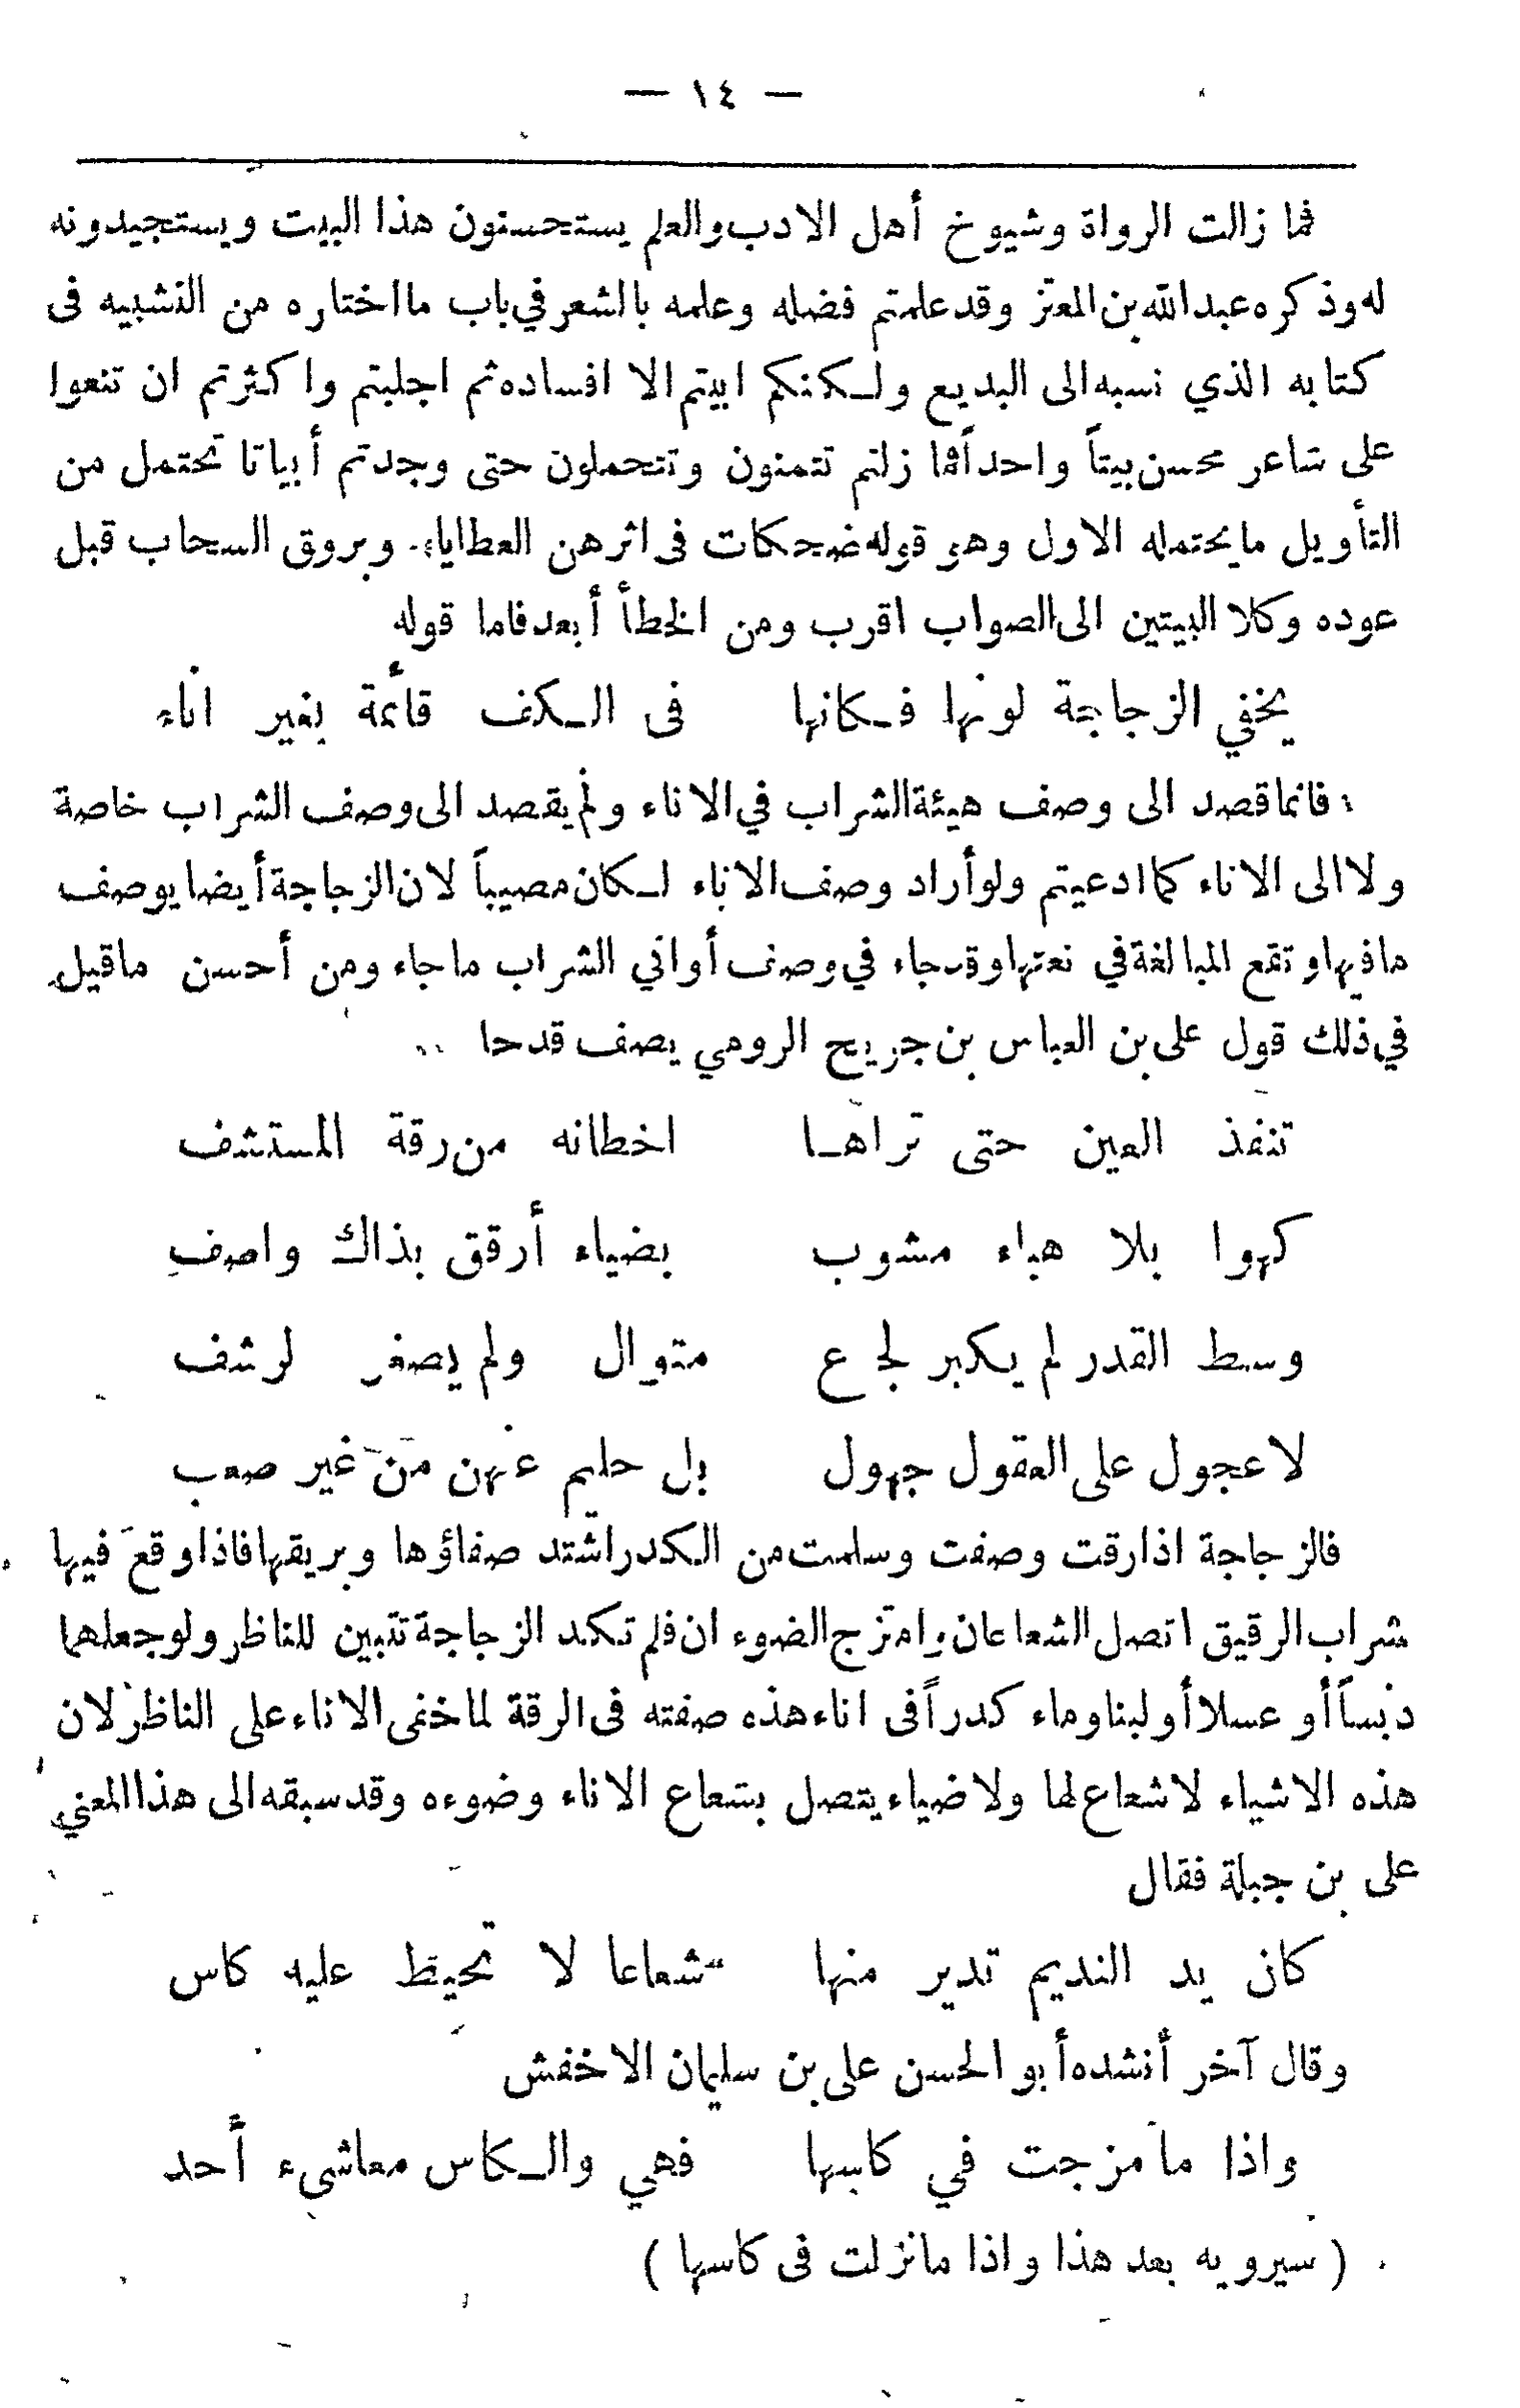 — ١٤ —
فما زالت الرواة وشيوخ أهل الادب والعلم يستحسنون هذا البيت ويستجيدونه
له وذكره عبد الله بن المعتز وقد علمتم فضله وعلمه بالشعر في باب ما اختاره من التشبيه فى
كتابه الذي نسبه الى البديع ولكنكم ابيتم الا افساده ثم اجلبتم واكثرتم ان تنعوا
على شاعر محسن بيتاً واحداً فما زلتم تتمنون وتتحملون حتى وجدتم أبياتا تحتمل من
التأويل ما يحتمله الاول وهو قوله ضحكات فى اثرهن العطايا، وبروق السحاب قبل
عوده وكلا البيتين الى الصواب اقرب ومن الخطأ أبعد فاما قوله
يخفي الزجاجة لونها فكانها فى الكف قائمة بغير اناء
فانما قصد الى وصف هيئة الشراب في الاناء ولم يقصد الى وصف الشراب خاصة
ولا الى الاناء كما ادعيتم ولو أراد وصف الاناء لكان مصيباً لان الزجاجة أيضا يوصف
ما فيها وتقع المبالغة في نعتها وقد جاء في وصف أواني الشراب ما جاء ومن أحسن ما قيل
في ذلك قول على بن العباس بن جريح الرومي يصف قدحا
تنفذ العين حتى تراها اخطانه من رقة المستشف
كهوا بلا هباء مشوب بضياء أرقق بذاك واصف
وسط القدر لم يكبر لجرع متوال ولم يصغر لرشف
لا عجول على العقول جهول بل حليم عنهن من غير صعب
فالزجاجة اذا رقت وصفت وسلمت من الكدر اشتد صفاؤها وبريقها فاذا وقع فيها
شراب الرقيق اتصل الشعاعان وامتزج الضوء ان فلم تكد الزجاجة تتبين للناظر ولو جعلها
دبساً أو عسلا أو لبنا وماء كدراً فى اناء هذه صفته فى الرقة لما خفى الاناء على الناظر لان
هذه الاشياء لا شعاع لها ولا ضياء يتصل بشعاع الاناء وضوءه وقد سبقه الى هذا المعني
على بن جبلة فقال
كان يد النديم تدير منها شعاعا لا تحيط عليه كاس
وقال آخر أنشده أبو الحسن على بن سليمان الاخفش
واذا ما مزجت في كاسها فهي والكاس معاشىء أحد
( سيرويه بعد هذا واذا ما نزلت فى كاسها )